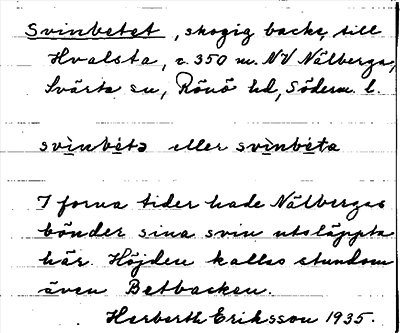 Svinbetet, skogig backe till
Hvalsta, c. 350 m. NV Nälberga,
Svärta sn, Rönö hd, Söderm. l.
svinbetə eller svinbeta
I forna tider hade Nälbergas
bönder sina svin utsläppta
här. Höjden kallas stundom
även Betbacken.
Herberth Eriksson 1935.